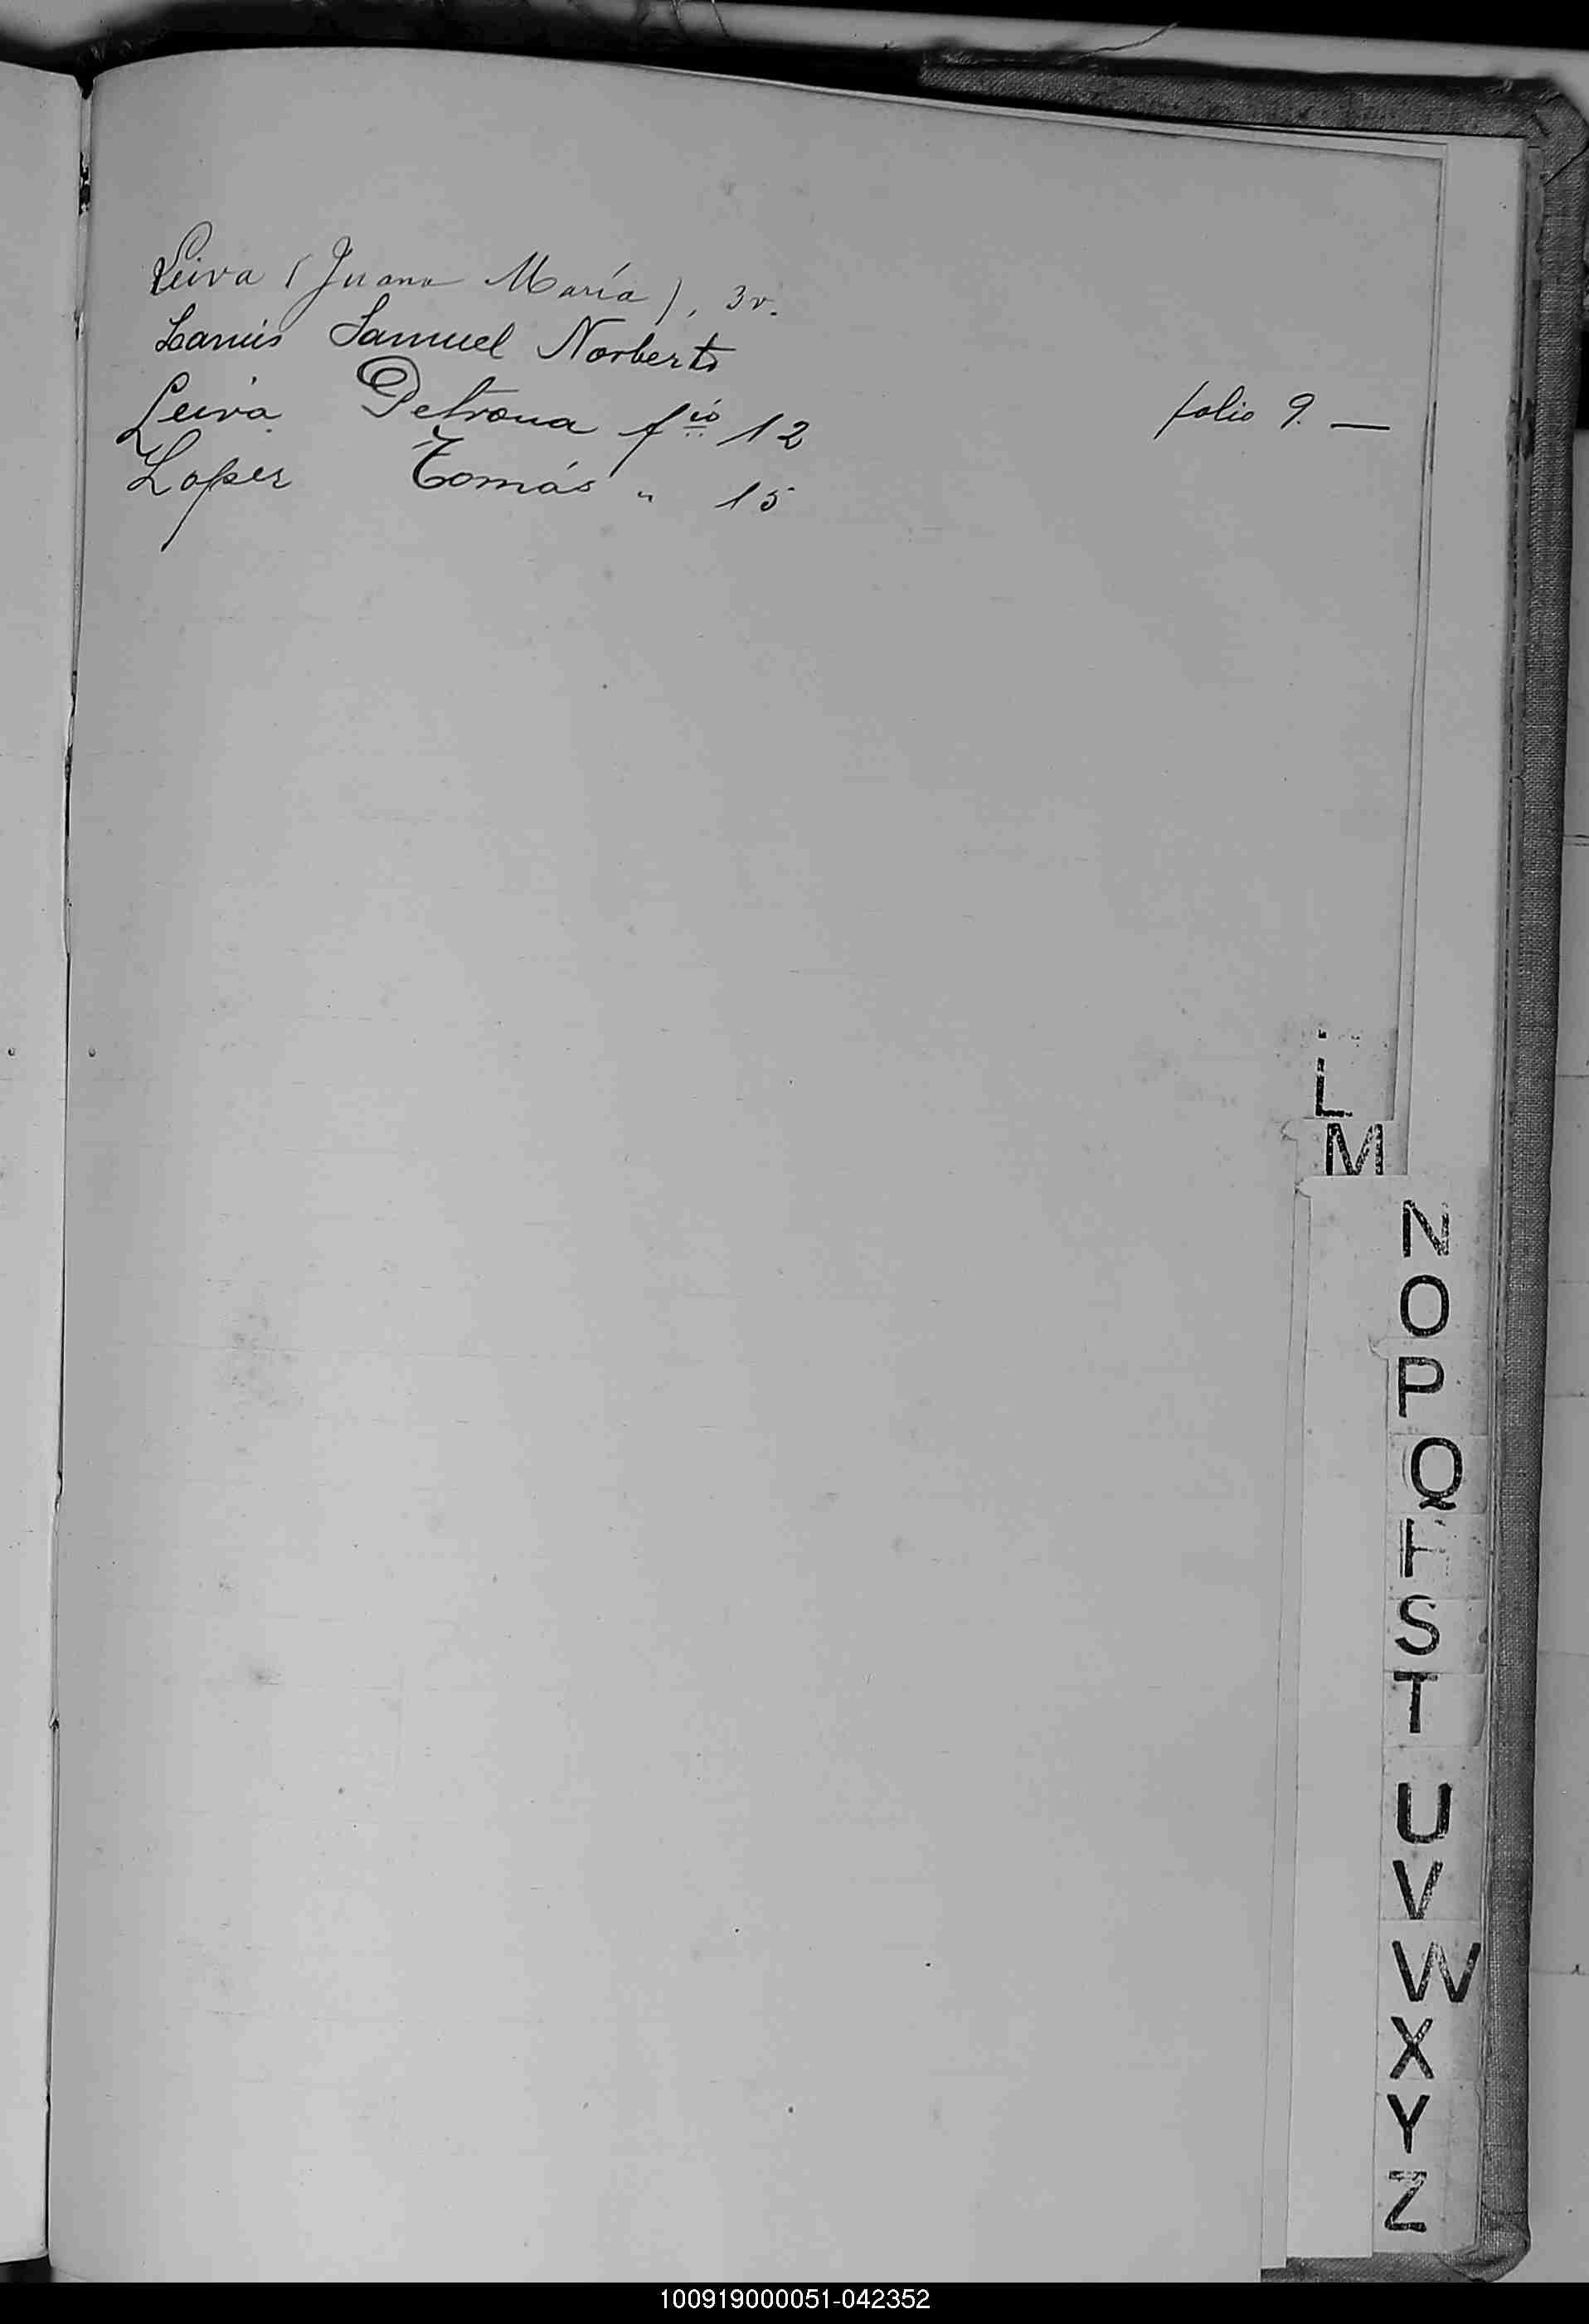 Leiva (Juana María), 3v.
Lanús Samuel Norberto folio 9. —
Leiva Petrona fio 12
Lopez Tomás " 15
L
M
N
O
P
Q
R
S
T
U
V
W
X
Y
Z
100919000051-042352